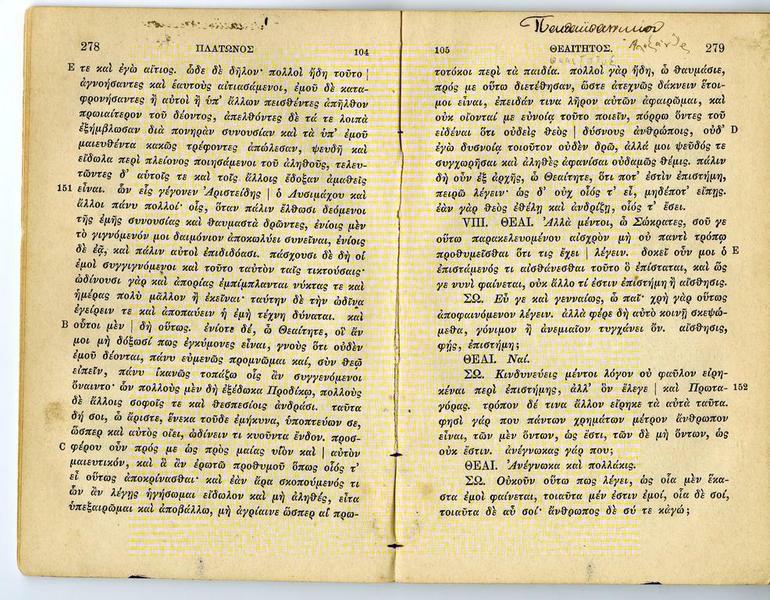 278 ΠΛΑΤΩΝΟΣ 104
E τε καὶ ἐγὼ αἴτιος. ὧδε δὲ δῆλον· πολλοὶ ἤδη τοῦτο |
ἀγνοήσαντες καὶ ἑαυτοὺς αἰτιασάμενοι, ἐμοῦ δὲ κατα-
φρονήσαντες ἢ αὐτοὶ ἢ ὑπ' ἄλλων πεισθέντες ἀπῆλθον
πρωιαίτερον τοῦ δέοντος, ἀπελθόντες δὲ τά τε λοιπὰ
ἐξήμβλωσαν διὰ πονηρὰν συνουσίαν καὶ τὰ ὑπ' ἐμοῦ
μαιευθέντα κακῶς τρέφοντες ἀπώλεσαν, ψευδῆ καὶ
εἴδωλα περὶ πλείονος ποιησάμενοι τοῦ ἀληθοῦς, τελευ-
τῶντες δ' αὑτοῖς τε καὶ τοῖς ἄλλοις ἔδοξαν ἀμαθεῖς
151 εἶναι. ὧν εἷς γέγονεν Ἀριστείδης | ὁ Λυσιμάχου καὶ
ἄλλοι πάνυ πολλοί· οἷς, ὅταν πάλιν ἔλθωσι δεόμενοι
τῆς ἐμῆς συνουσίας καὶ θαυμαστὰ δρῶντες, ἐνίοις μὲν
τὸ γιγνόμενόν μοι δαιμόνιον ἀποκωλύει συνεῖναι, ἐνίοις
δὲ ἐᾷ, καὶ πάλιν αὐτοὶ ἐπιδιδόασι. πάσχουσι δὲ δὴ οἱ
ἐμοὶ συγγιγνόμενοι καὶ τοῦτο ταὐτὸν ταῖς τικτούσαις·
ὠδίνουσι γὰρ καὶ ἀπορίας ἐμπίμπλανται νύκτας τε καὶ
ἡμέρας πολὺ μᾶλλον ἢ ἐκεῖναι· ταύτην δὲ τὴν ὠδῖνα
ἐγείρειν τε καὶ ἀποπαύειν ἡ ἐμὴ τέχνη δύναται. καὶ
B οὗτοι μὲν | δὴ οὕτως. ἐνίοτε δέ, ὦ Θεαίτητε, οἳ ἄν
μοι μὴ δόξωσί πως ἐγκύμονες εἶναι, γνοὺς ὅτι οὐδὲν
ἐμοῦ δέονται, πάνυ εὐμενῶς προμνῶμαι καί, σὺν θεῷ
εἰπεῖν, πάνυ ἱκανῶς τοπάζω οἷς ἂν συγγενόμενοι
ὄναιντο· ὧν πολλοὺς μὲν δὴ ἐξέδωκα Προδίκῳ, πολλοὺς
δὲ ἄλλοις σοφοῖς τε καὶ θεσπεσίοις ἀνδράσι. ταῦτα
δή σοι, ὦ ἄριστε, ἕνεκα τοῦδε ἐμήκυνα, ὑποπτεύων σε,
ὥσπερ καὶ αὐτὸς οἴει, ὠδίνειν τι κυοῦντα ἔνδον. προσ-
C φέρου οὖν πρός με ὡς πρὸς μαίας υἱὸν καὶ | αὐτὸν
μαιευτικόν, καὶ ἃ ἂν ἐρωτῶ προθυμοῦ ὅπως οἷός τ'
εἶ οὕτως ἀποκρίνασθαι· καὶ ἐὰν ἄρα σκοπούμενός τι
ὧν ἂν λέγῃς ἡγήσωμαι εἴδωλον καὶ μὴ ἀληθές, εἶτα
ὑπεξαιρῶμαι καὶ ἀποβάλλω, μὴ ἀγρίαινε ὥσπερ αἱ πρω-
105 ΘΕΑΙΤΗΤΟΣ. 279
τοτόκοι περὶ τὰ παιδία. πολλοὶ γὰρ ἤδη, ὦ θαυμάσιε,
πρός με οὕτω διετέθησαν, ὥστε ἀτεχνῶς δάκνειν ἕτοι-
μοι εἶναι, ἐπειδάν τινα λῆρον αὐτῶν ἀφαιρῶμαι, καὶ
οὐκ οἴονταί με εὐνοίᾳ τοῦτο ποιεῖν, πόρρω ὄντες τοῦ
εἰδέναι ὅτι οὐδεὶς θεὸς | δύσνους ἀνθρώποις, οὐδ' D
ἐγὼ δυσνοίᾳ τοιοῦτον οὐδὲν δρῶ, ἀλλά μοι ψεῦδός τε
συγχωρῆσαι καὶ ἀληθὲς ἀφανίσαι οὐδαμῶς θέμις. πάλιν
δὴ οὖν ἐξ ἀρχῆς, ὦ Θεαίτητε, ὅτι ποτ' ἐστὶν ἐπιστήμη,
πειρῶ λέγειν· ὡς δ' οὐχ οἷός τ' εἶ, μηδέποτ' εἴπῃς.
ἐὰν γὰρ θεὸς ἐθέλῃ καὶ ἀνδρίζῃ, οἷός τ' ἔσει.
VIII. ΘΕΑΙ. Ἀλλὰ μέντοι, ὦ Σώκρατες, σοῦ γε
οὕτω παρακελευομένου αἰσχρὸν μὴ οὐ παντὶ τρόπῳ
προθυμεῖσθαι ὅτι τις ἔχει | λέγειν. δοκεῖ οὖν μοι ὁ E
ἐπιστάμενός τι αἰσθάνεσθαι τοῦτο ὃ ἐπίσταται, καὶ ὥς
γε νυνὶ φαίνεται, οὐκ ἄλλο τί ἐστιν ἐπιστήμη ἢ αἴσθησις.
ΣΩ. Εὖ γε καὶ γενναίως, ὦ παῖ· χρὴ γὰρ οὕτως
ἀποφαινόμενον λέγειν. ἀλλὰ φέρε δὴ αὐτὸ κοινῇ σκεψώ-
μεθα, γόνιμον ἢ ἀνεμιαῖον τυγχάνει ὄν. αἴσθησις,
φῄς, ἐπιστήμη;
ΘΕΑΙ. Ναί.
ΣΩ. Κινδυνεύεις μέντοι λόγον οὐ φαῦλον εἰρη-
κέναι περὶ ἐπιστήμης, ἀλλ' ὃν ἔλεγε | καὶ Πρωτα- 152
γόρας. τρόπον δέ τινα ἄλλον εἴρηκε τὰ αὐτὰ ταῦτα.
φησὶ γάρ που πάντων χρημάτων μέτρον ἄνθρωπον
εἶναι, τῶν μὲν ὄντων, ὡς ἔστι, τῶν δὲ μὴ ὄντων, ὡς
οὐκ ἔστιν. ἀνέγνωκας γάρ που;
ΘΕΑΙ. Ἀνέγνωκα καὶ πολλάκις.
ΣΩ. Οὐκοῦν οὕτω πως λέγει, ὡς οἷα μὲν ἕκα-
στα ἐμοὶ φαίνεται, τοιαῦτα μὲν ἔστιν ἐμοί, οἷα δὲ σοί,
τοιαῦτα δὲ αὖ σοί· ἄνθρωπος δὲ σύ τε κἀγώ;